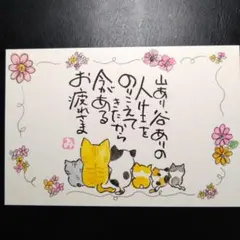 山あり谷ありの
人生を
のりこえて
きたから
今がある
お疲れさま